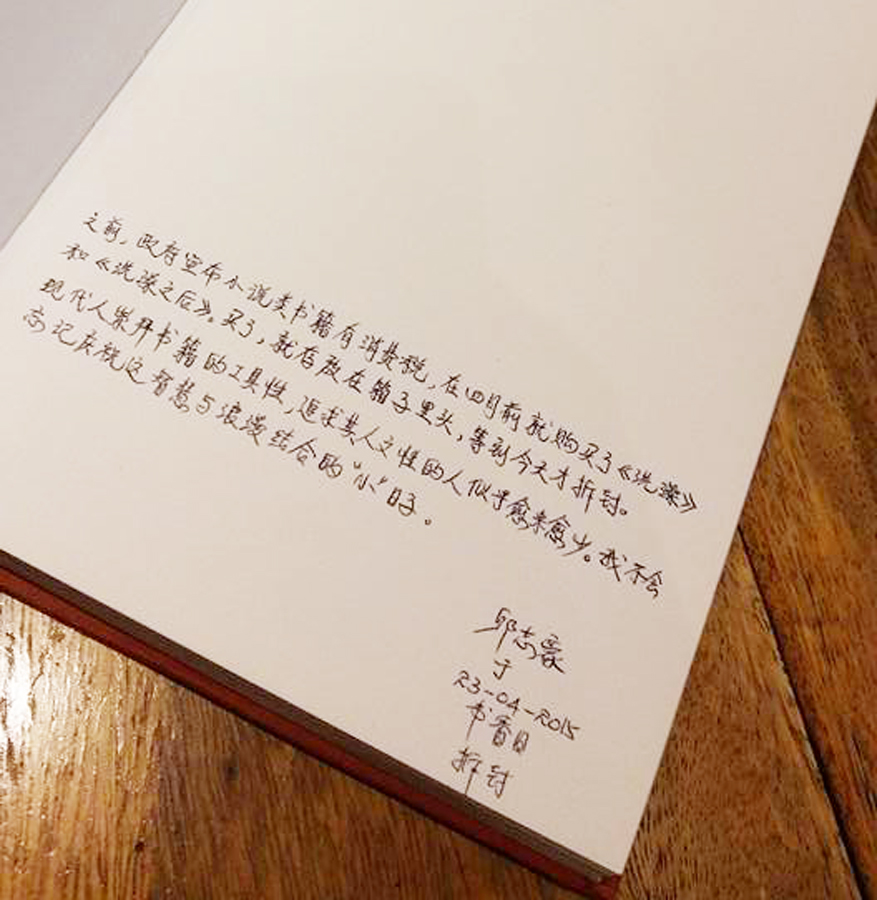 之前，政府宣布小说类书籍有消费税，在四月前就购买了《洗澡》
和《洗澡之后》。买了，就存放在箱子里头，等到今天才拆封。
现代人崇拜书籍的工具性，追求其人文性的人似乎愈来愈少。我不会
忘记庆祝这智慧与浪漫结合的“小”日子。
邱志豪
于
23-04-2015
书香日
拆封